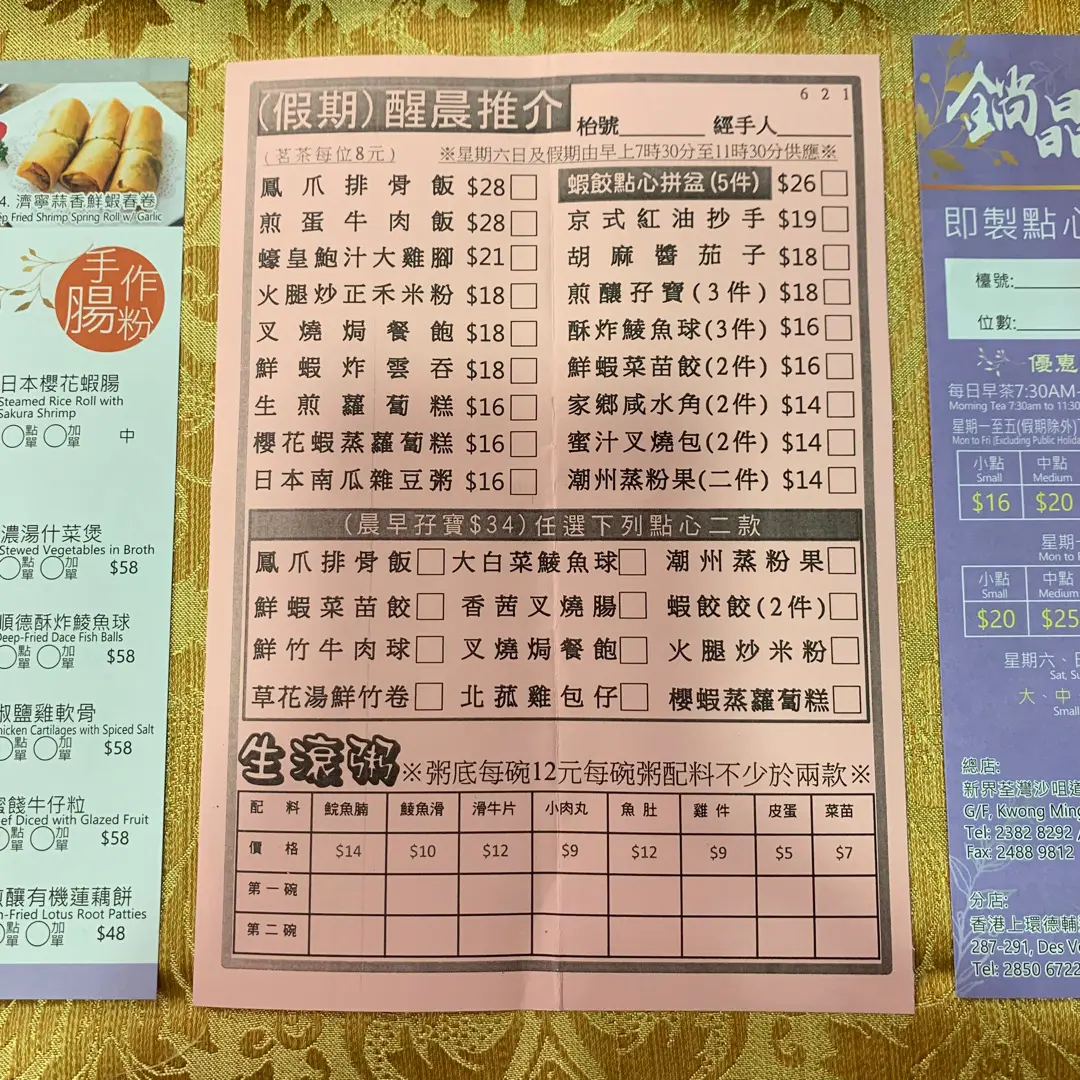 4. 濟寧蒜香鮮蝦春卷
Fried Shrimp Spring Roll w/ Garlic
手作
腸粉
日本櫻花蝦腸
Steamed Rice Roll with
Sakura Shrimp
點單 加單 中
濃湯什菜煲
Stewed Vegetables in Broth
點單 加單 $58
順德酥炸鯪魚球
Deep-Fried Dace Fish Balls
點單 加單 $58
椒鹽雞軟骨
Chicken Cartilages with Spiced Salt
點單 加單 $58
蜜餞牛仔粒
Beef Diced with Glazed Fruit
點單 加單 $58
煎釀有機蓮藕餅
Pan-Fried Lotus Root Patties
點單 加單 $48
621
(假期)醒晨推介 枱號 經手人
(茗茶每位8元) ※星期六日及假期由早上7時30分至11時30分供應※
鳳爪排骨飯 $28 蝦餃點心拼盆(5件) $26
煎蛋牛肉飯 $28 京式紅油抄手 $19
蠔皇鮑汁大雞腳 $21 胡麻醬茄子 $18
火腿炒正禾米粉 $18 煎釀孖寶(3件) $18
叉燒焗餐飽 $18 酥炸鯪魚球(3件) $16
鮮蝦炸雲吞 $18 鮮蝦菜苗餃(2件) $16
生煎蘿蔔糕 $16 家鄉咸水角(2件) $14
櫻花蝦蒸蘿蔔糕 $16 蜜汁叉燒包(2件) $14
日本南瓜雜豆粥 $16 潮州蒸粉果(二件) $14
(晨早孖寶$34)任選下列點心二款
鳳爪排骨飯 大白菜鯪魚球 潮州蒸粉果
鮮蝦菜苗餃 香茜叉燒腸 蝦餃餃(2件)
鮮竹牛肉球 叉燒焗餐飽 火腿炒米粉
草花湯鮮竹卷 北菰雞包仔 櫻蝦蒸蘿蔔糕
生滾粥 ※粥底每碗12元每碗粥配料不少於兩款※
配料 鯇魚腩 鯪魚滑 滑牛片 小肉丸 魚肚 雞件 皮蛋 菜苗
價格 $14 $10 $12 $9 $12 $9 $5 $7
第一碗
第二碗
即製點心
檯號:
位數:
優惠
每日早茶7:30AM-
Morning Tea 7:30am to 11:30
星期一至五(假期除外)
Mon to Fri (Excluding Public Holida
小點 中點
Small Medium
$16 $20
星期一
Mon to
小點 中點
Small Medium
$20 $25
星期六、日
Sat, Su
大、中
Small
總店:
新界荃灣沙咀道
G/F, Kwong Ming
Tel: 2382 8292
Fax: 2488 9812
分店:
香港上環德輔
287-291, Des V
Tel: 2850 6722